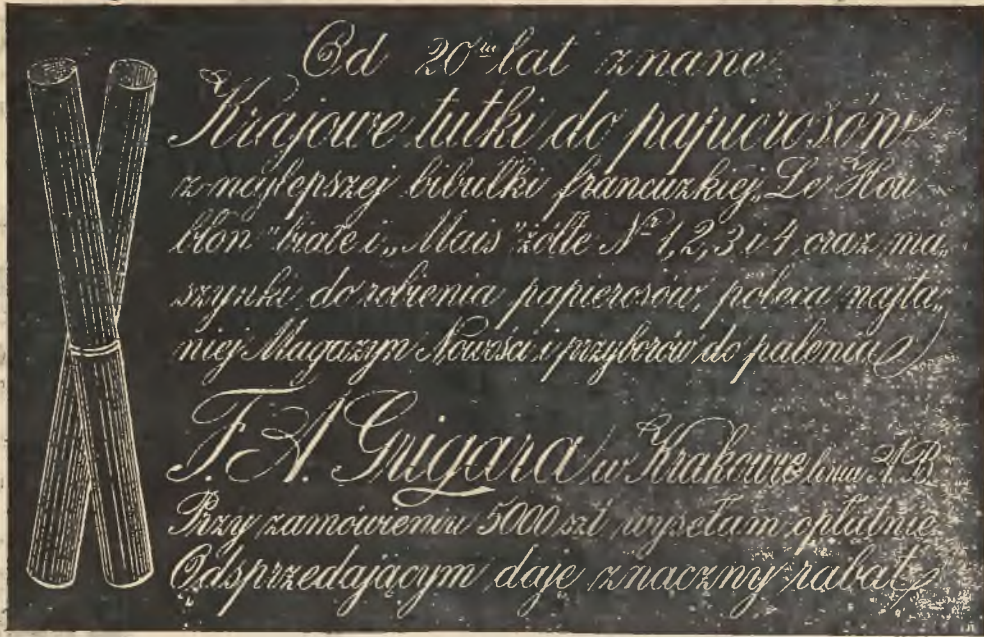 Od 20tu lat znane
Krajowe tutki do papierosów
z najlepszej bibułki francuzkiej „Le Hou
blon" białe i „Mais" żółte No 1, 2, 3 i 4 oraz ma„
szynki do robienia papierosów, poleca najta„
niej Magazyn Nowości i przyborów do palenia
F. A. Grigara w Krakowie linia A.B.
Przy zamówieniu 5000 szt wysełam opłatnie.
Odsprzedającym daję znaczny rabat